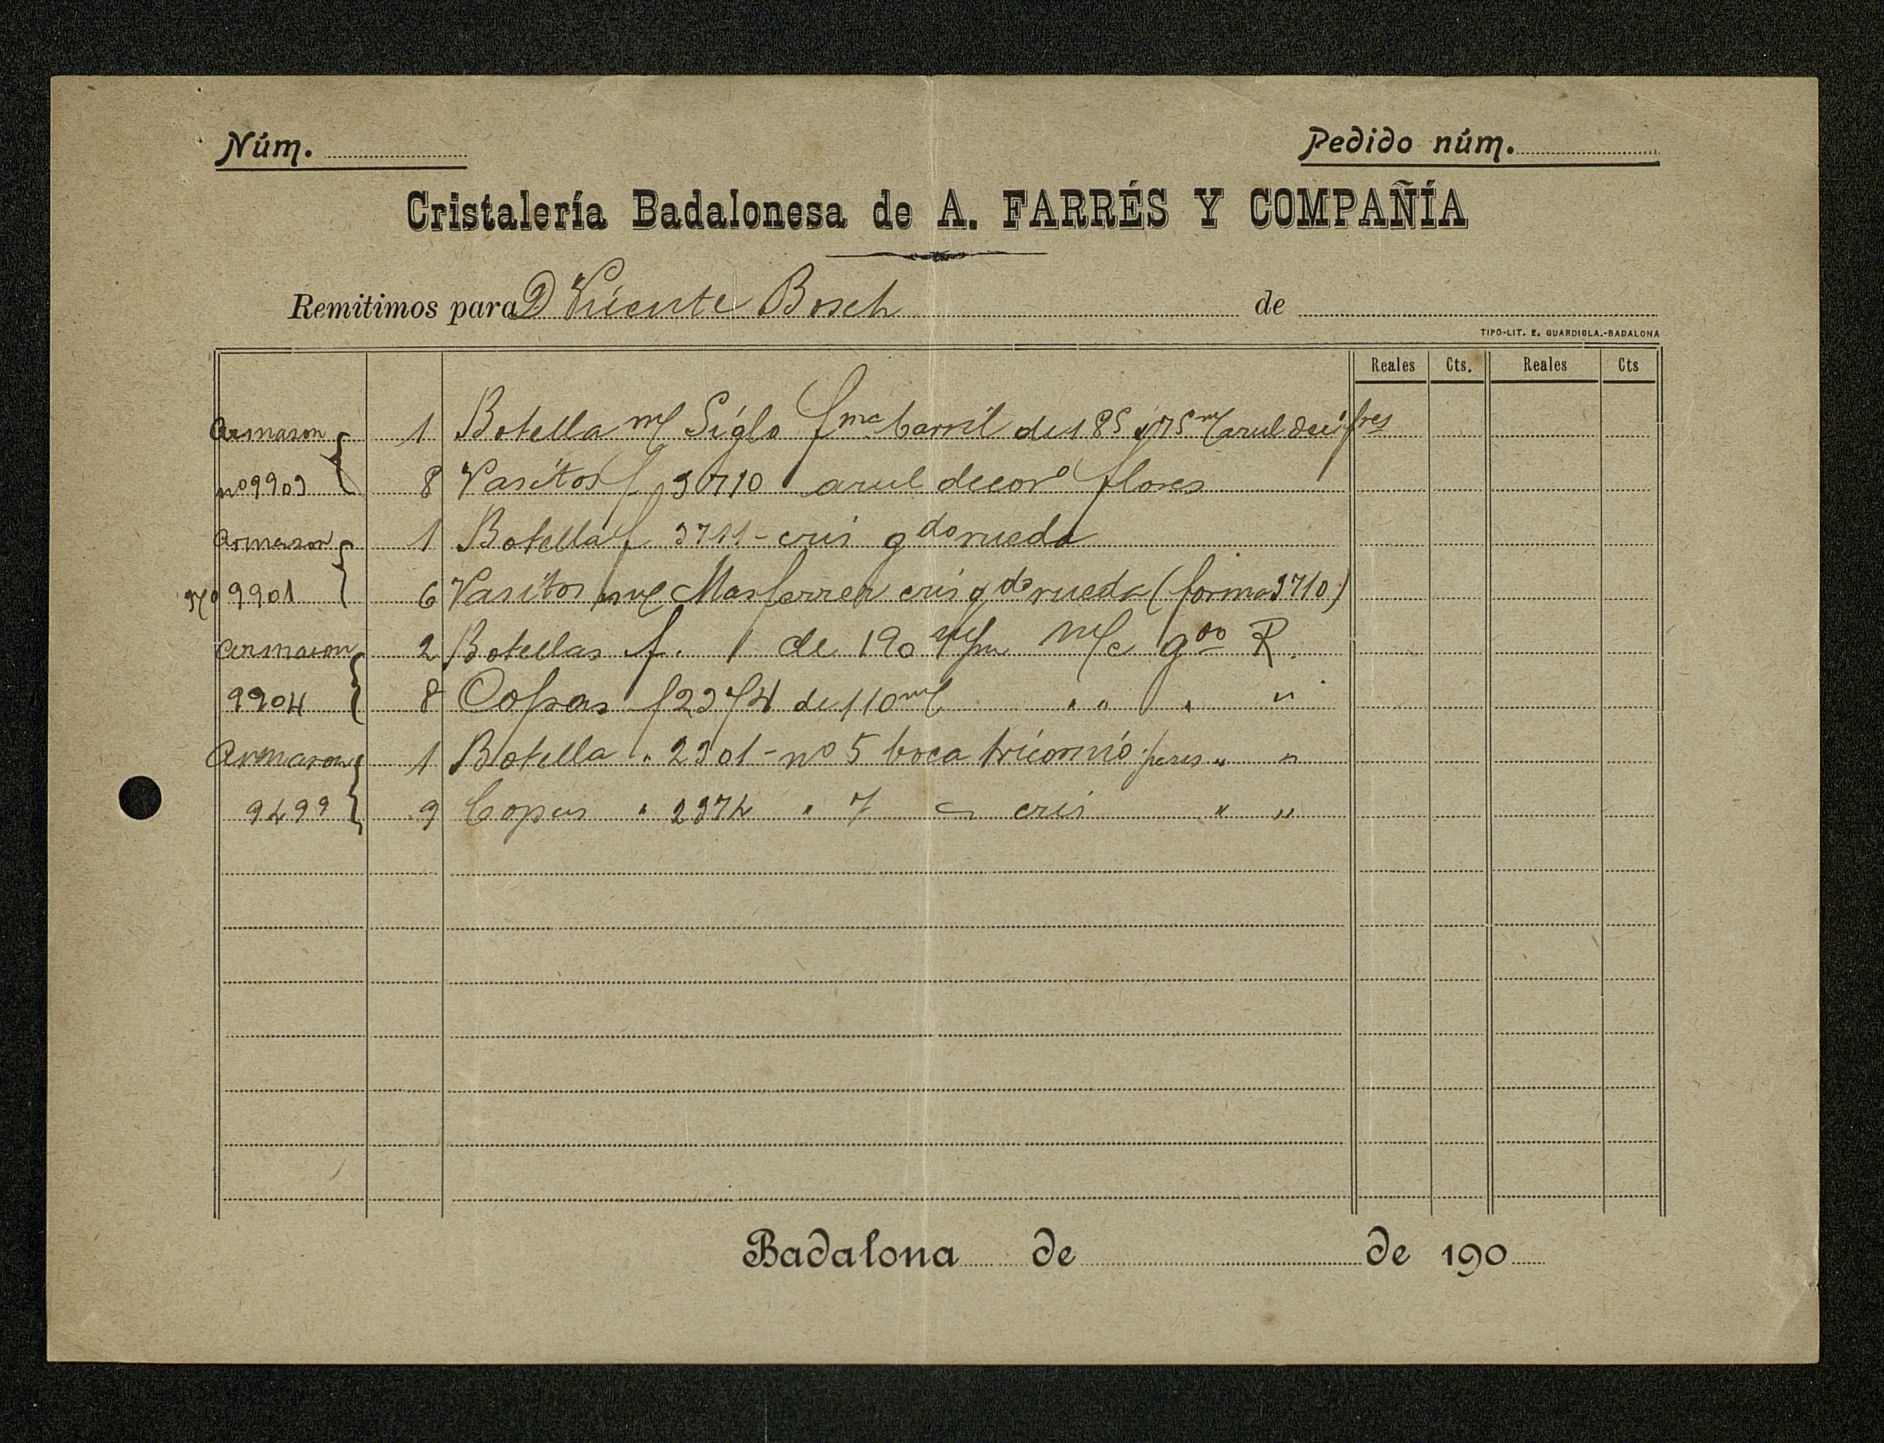 Núm.
Pedido núm.
Cristalería Badalonesa de A. FARRÉS Y COMPAÑÍA
Remitimos para D Vicente Bosch de
TIPO-LIT. E. GUARDIOLA.-BADALONA
Reales Cts. Reales Cts
Armason 1 Botella Siglo fma barril de 185 azul
nº 9903 8 Vasitos f 3710 azul decor flores
Armason 1 Botella f 3711 - cris gdo rueda
Nº 9901 6 Vasitos Masferrer cris gdo rueda (forma 3710)
Armason 2 Botellas f. 1 de 190 m/m gdo R.
9904 8 Copas f 2374 de 110 " " " "
Armason 1 Botella " 2301 - nº 5 boca tricornio " "
9499 9 Copas " 2374 " 7 cris " "
Badalona de de 190